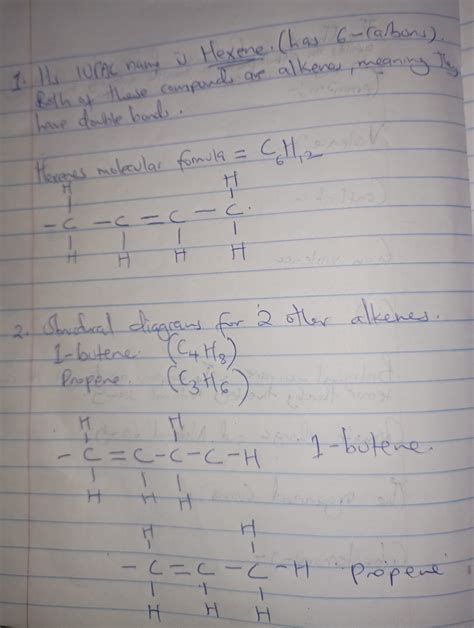 1. Its IUPAC name is Hexene. (has 6-carbons).
Both of these compounds are alkenes, meaning they
have double bonds.
Hexenes molecular formula = C6H12
H H
-C - C = C - C.
H H H H
2. Structural diagrams for 2 other alkenes.
1-butene (C4H8)
Propene. (C3H6)
H H
-C=C-C-C-H 1-butene.
H H H
H H
-C=C-C-H propene
H H H